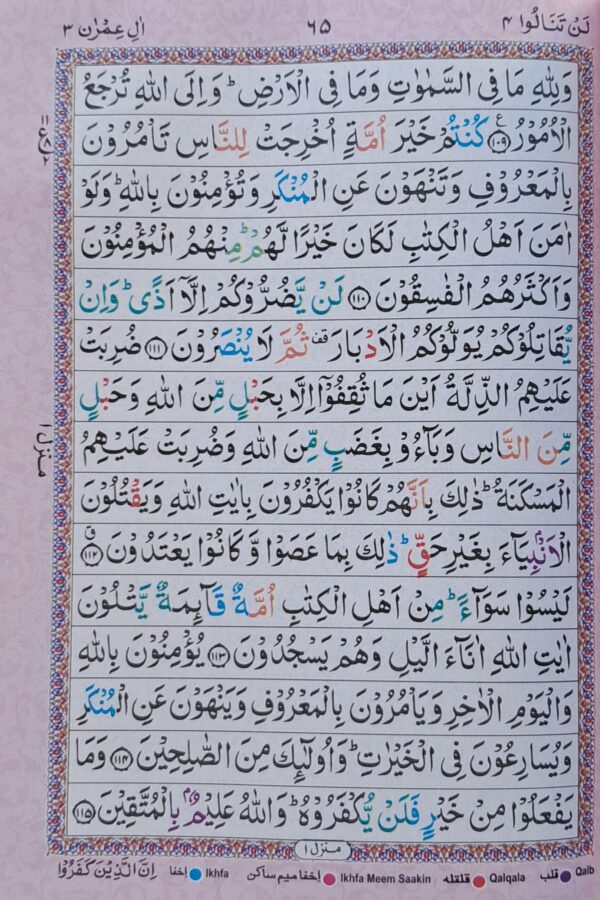 لَنۡ تَنَالُوۡا ۴ ۶۵ اٰلِ عِمۡرٰن ۳
وَلِلّٰهِ مَا فِى السَّمٰوٰتِ وَمَا فِى الۡاَرۡضِ‌ؕ وَاِلَى اللّٰهِ تُرۡجَعُ
الۡاُمُوۡرُ ﴿۱۰۹﴾ كُنۡتُمۡ خَيۡرَ اُمَّةٍ اُخۡرِجَتۡ لِلنَّاسِ تَاۡمُرُوۡنَ
بِالۡمَعۡرُوۡفِ وَتَنۡهَوۡنَ عَنِ الۡمُنۡكَرِ وَتُؤۡمِنُوۡنَ بِاللّٰهِ‌ؕ وَلَوۡ
اٰمَنَ اَهۡلُ الۡكِتٰبِ لَكَانَ خَيۡرًا لَّهُمۡ‌ؕ مِنۡهُمُ الۡمُؤۡمِنُوۡنَ
وَاَكۡثَرُهُمُ الۡفٰسِقُوۡنَ ﴿۱۱۰﴾ لَنۡ يَّضُرُّوۡكُمۡ اِلَّاۤ اَذًى‌ؕ وَاِنۡ
يُّقَاتِلُوۡكُمۡ يُوَلُّوۡكُمُ الۡاَدۡبَارَ ثُمَّ لَا يُنۡصَرُوۡنَ ﴿۱۱۱﴾ ضُرِبَتۡ
عَلَيۡهِمُ الذِّلَّةُ اَيۡنَ مَا ثُقِفُوۡۤا اِلَّا بِحَبۡلٍ مِّنَ اللّٰهِ وَحَبۡلٍ
مِّنَ النَّاسِ وَبَآءُوۡ بِغَضَبٍ مِّنَ اللّٰهِ وَضُرِبَتۡ عَلَيۡهِمُ
الۡمَسۡكَنَةُ‌ؕ ذٰلِكَ بِاَنَّهُمۡ كَانُوۡا يَكۡفُرُوۡنَ بِاٰيٰتِ اللّٰهِ وَيَقۡتُلُوۡنَ
الۡاَنۡۢبِيَآءَ بِغَيۡرِ حَقٍّ‌ؕ ذٰلِكَ بِمَا عَصَوۡا وَّكَانُوۡا يَعۡتَدُوۡنَ ﴿۱۱۲﴾
لَيۡسُوۡا سَوَآءً‌ؕ مِنۡ اَهۡلِ الۡكِتٰبِ اُمَّةٌ قَآئِمَةٌ يَّتۡلُوۡنَ
اٰيٰتِ اللّٰهِ اٰنَآءَ الَّيۡلِ وَهُمۡ يَسۡجُدُوۡنَ ﴿۱۱۳﴾ يُؤۡمِنُوۡنَ بِاللّٰهِ
وَالۡيَوۡمِ الۡاٰخِرِ وَيَاۡمُرُوۡنَ بِالۡمَعۡرُوۡفِ وَيَنۡهَوۡنَ عَنِ الۡمُنۡكَرِ
وَيُسَارِعُوۡنَ فِى الۡخَيۡرٰتِ‌ؕ وَاُولٰٓئِكَ مِنَ الصّٰلِحِيۡنَ ﴿۱۱۴﴾ وَمَا
يَفۡعَلُوۡا مِنۡ خَيۡرٍ فَلَنۡ يُّكۡفَرُوۡهُ‌ؕ وَاللّٰهُ عَلِيۡمٌۢ بِالۡمُتَّقِيۡنَ ﴿۱۱۵﴾
منزل ۱
منزل ۱
اِنَّ الَّذِيۡنَ كَفَرُوۡا اِخفا Ikhfa اِخفا میم ساکن Ikhfa Meem Saakin قلقله Qalqala قلب Qalb